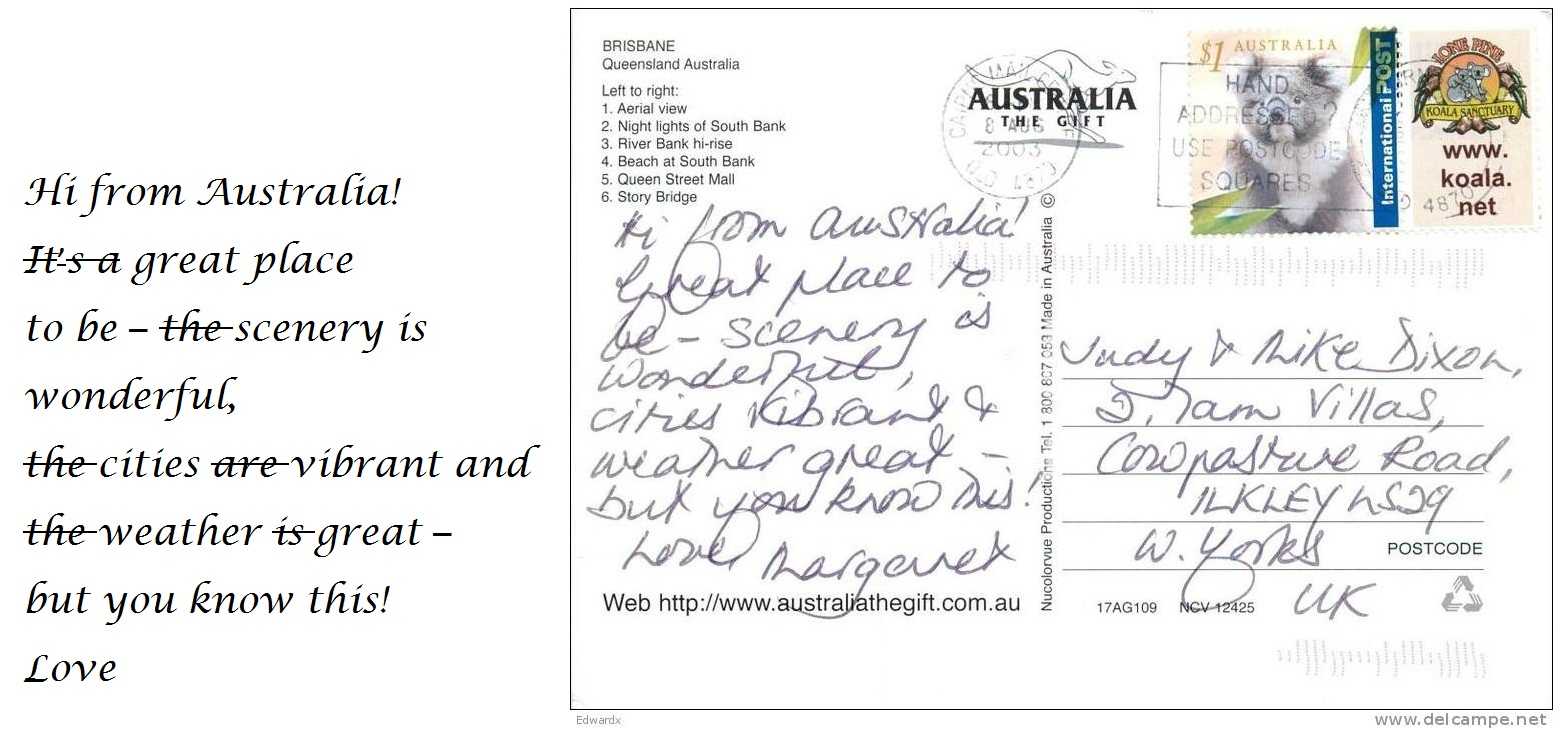 Hi from Australia!
It's a great place
to be – the scenery is
wonderful,
the cities are vibrant and
the weather is great –
but you know this!
Love
BRISBANE
Queensland Australia
Left to right:
1. Aerial view
2. Night lights of South Bank
3. River Bank hi-rise
4. Beach at South Bank
5. Queen Street Mall
6. Story Bridge
Hi from Australia!
Great place to
be – scenery is
wonderful,
cities vibrant &
weather great –
but you know this!
Love Margaret
Web http://www.australiathegift.com.au
AUSTRALIA
THE GIFT
8 AUG
2003
QLD 4870
HAND
ADDRESSED?
USE POSTCODE
SQUARES
$1 AUSTRALIA
International POST
LONE PINE
KOALA SANCTUARY
www.
koala.
net
4870
Nucolorvue Productions Tel. 1 800 807 053 Made in Australia ©
Judy & Mike Dixon,
Villas,
Cowpasture Road,
ILKLEY LS29
W. Yorks
POSTCODE
UK
17AG109 NCV 12425
Edwardx
www.delcampe.net